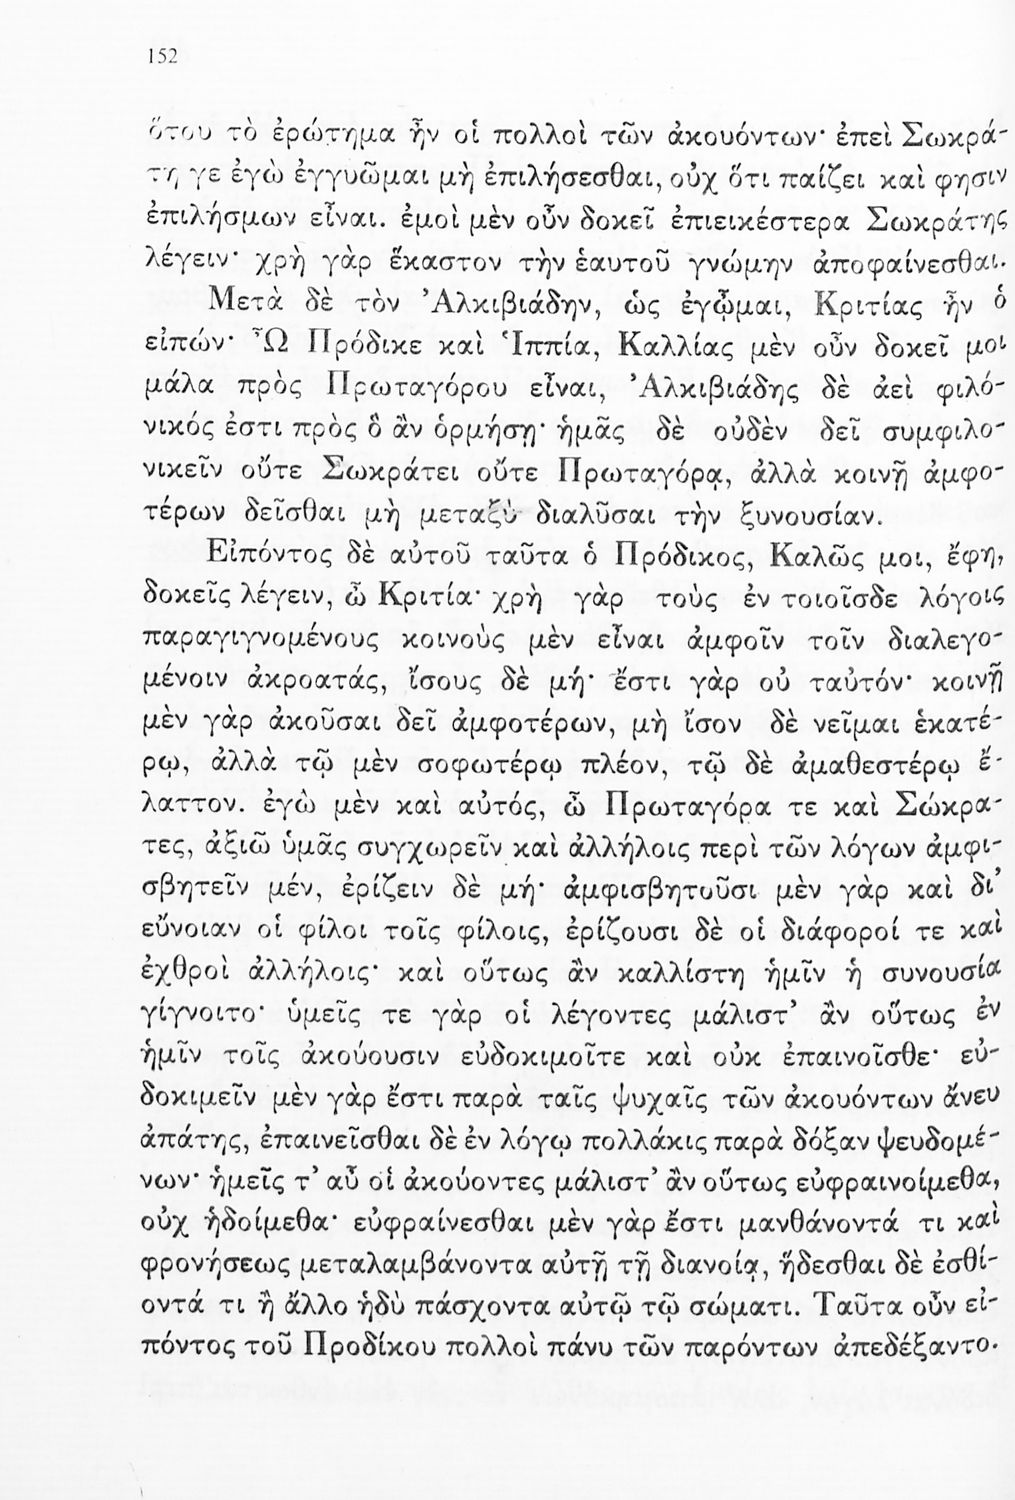 152
ὅτου τὸ ἐρώτημα ἦν οἱ πολλοὶ τῶν ἀκουόντων· ἐπεὶ Σωκρά-
τη γε ἐγὼ ἐγγυῶμαι μὴ ἐπιλήσεσθαι, οὐχ ὅτι παίζει καὶ φησιν
ἐπιλήσμων εἶναι. ἐμοὶ μὲν οὖν δοκεῖ ἐπιεικέστερα Σωκράτης
λέγειν· χρὴ γὰρ ἕκαστον τὴν ἑαυτοῦ γνώμην ἀποφαίνεσθαι.
Μετὰ δὲ τὸν Ἀλκιβιάδην, ὡς ἐγᾦμαι, Κριτίας ἦν ὁ
εἰπών· Ὦ Πρόδικε καὶ Ἱππία, Καλλίας μὲν οὖν δοκεῖ μοι
μάλα πρὸς Πρωταγόρου εἶναι, Ἀλκιβιάδης δὲ ἀεὶ φιλό-
νικός ἐστι πρὸς ὃ ἂν ὁρμήσῃ· ἡμᾶς δὲ οὐδὲν δεῖ συμφιλο-
νικεῖν οὔτε Σωκράτει οὔτε Πρωταγόρᾳ, ἀλλὰ κοινῇ ἀμφο-
τέρων δεῖσθαι μὴ μεταξὺ διαλῦσαι τὴν ξυνουσίαν.
Εἰπόντος δὲ αὐτοῦ ταῦτα ὁ Πρόδικος, Καλῶς μοι, ἔφη,
δοκεῖς λέγειν, ὦ Κριτία· χρὴ γὰρ τοὺς ἐν τοιοῖσδε λόγοις
παραγιγνομένους κοινοὺς μὲν εἶναι ἀμφοῖν τοῖν διαλεγο-
μένοιν ἀκροατάς, ἴσους δὲ μή· ἔστι γὰρ οὐ ταὐτόν· κοινῇ
μὲν γὰρ ἀκοῦσαι δεῖ ἀμφοτέρων, μὴ ἴσον δὲ νεῖμαι ἑκατέ-
ρῳ, ἀλλὰ τῷ μὲν σοφωτέρῳ πλέον, τῷ δὲ ἀμαθεστέρῳ ἔ-
λαττον. ἐγὼ μὲν καὶ αὐτός, ὦ Πρωταγόρα τε καὶ Σώκρα-
τες, ἀξιῶ ὑμᾶς συγχωρεῖν καὶ ἀλλήλοις περὶ τῶν λόγων ἀμφι-
σβητεῖν μέν, ἐρίζειν δὲ μή· ἀμφισβητοῦσι μὲν γὰρ καὶ δι’
εὔνοιαν οἱ φίλοι τοῖς φίλοις, ἐρίζουσι δὲ οἱ διάφοροί τε καὶ
ἐχθροὶ ἀλλήλοις· καὶ οὕτως ἂν καλλίστη ἡμῖν ἡ συνουσία
γίγνοιτο· ὑμεῖς τε γὰρ οἱ λέγοντες μάλιστ’ ἂν οὕτως ἐν
ἡμῖν τοῖς ἀκούουσιν εὐδοκιμοῖτε καὶ οὐκ ἐπαινοῖσθε· εὐ-
δοκιμεῖν μὲν γὰρ ἔστι παρὰ ταῖς ψυχαῖς τῶν ἀκουόντων ἄνευ
ἀπάτης, ἐπαινεῖσθαι δὲ ἐν λόγῳ πολλάκις παρὰ δόξαν ψευδομέ-
νων· ἡμεῖς τ’ αὖ οἱ ἀκούοντες μάλιστ’ ἂν οὕτως εὐφραινοίμεθα,
οὐχ ἡδοίμεθα· εὐφραίνεσθαι μὲν γὰρ ἔστι μανθάνοντά τι καὶ
φρονήσεως μεταλαμβάνοντα αὐτῇ τῇ διανοίᾳ, ἥδεσθαι δὲ ἐσθί-
οντά τι ἢ ἄλλο ἡδὺ πάσχοντα αὐτῷ τῷ σώματι. Ταῦτα οὖν εἰ-
πόντος τοῦ Προδίκου πολλοὶ πάνυ τῶν παρόντων ἀπεδέξαντο.